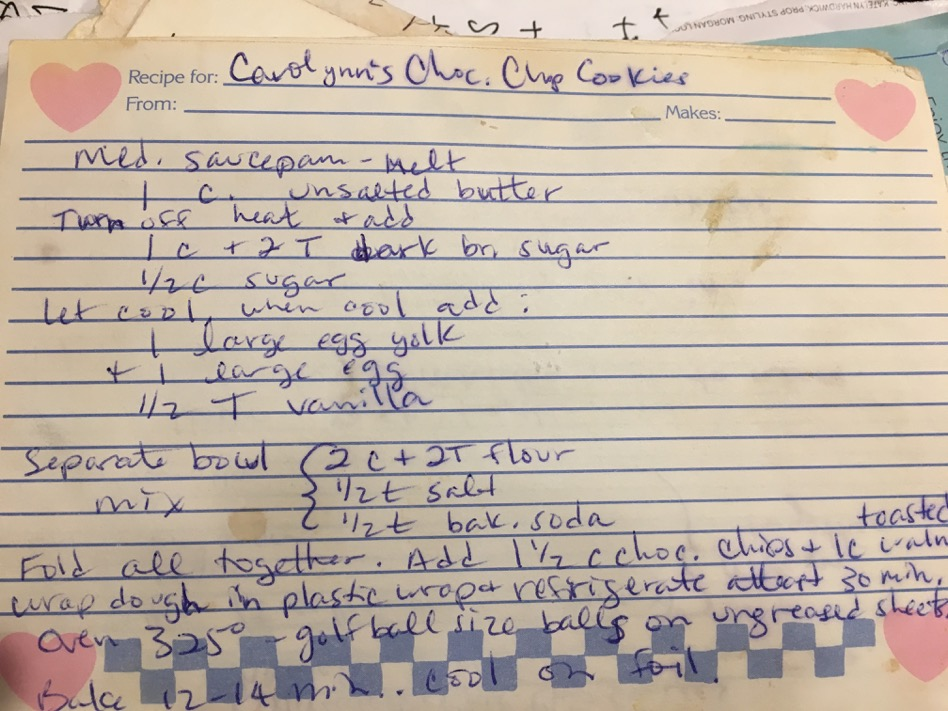 KATELYN HARDWICK PROP STYLING MORGAN
Recipe for: Carolynn's Choc. Chip Cookies
From: Makes:
Med. saucepan - Melt
1 c. unsalted butter
Turn off heat + add
1 c + 2 T dark bn sugar
1/2 c sugar
let cool, when cool add:
1 large egg yolk
+ 1 large egg
1/2 T vanilla
Separate bowl { 2 c + 2T flour
mix 1/2 t salt
1/2 t bak. soda
toasted
Fold all together. Add 1 1/2 c choc. chips + 1c waln
wrap dough in plastic wrap + refrigerate atleast 30 min.
Oven 325° - golfball size balls on ungreased sheets
Bake 12-14 min.. cool on foil.